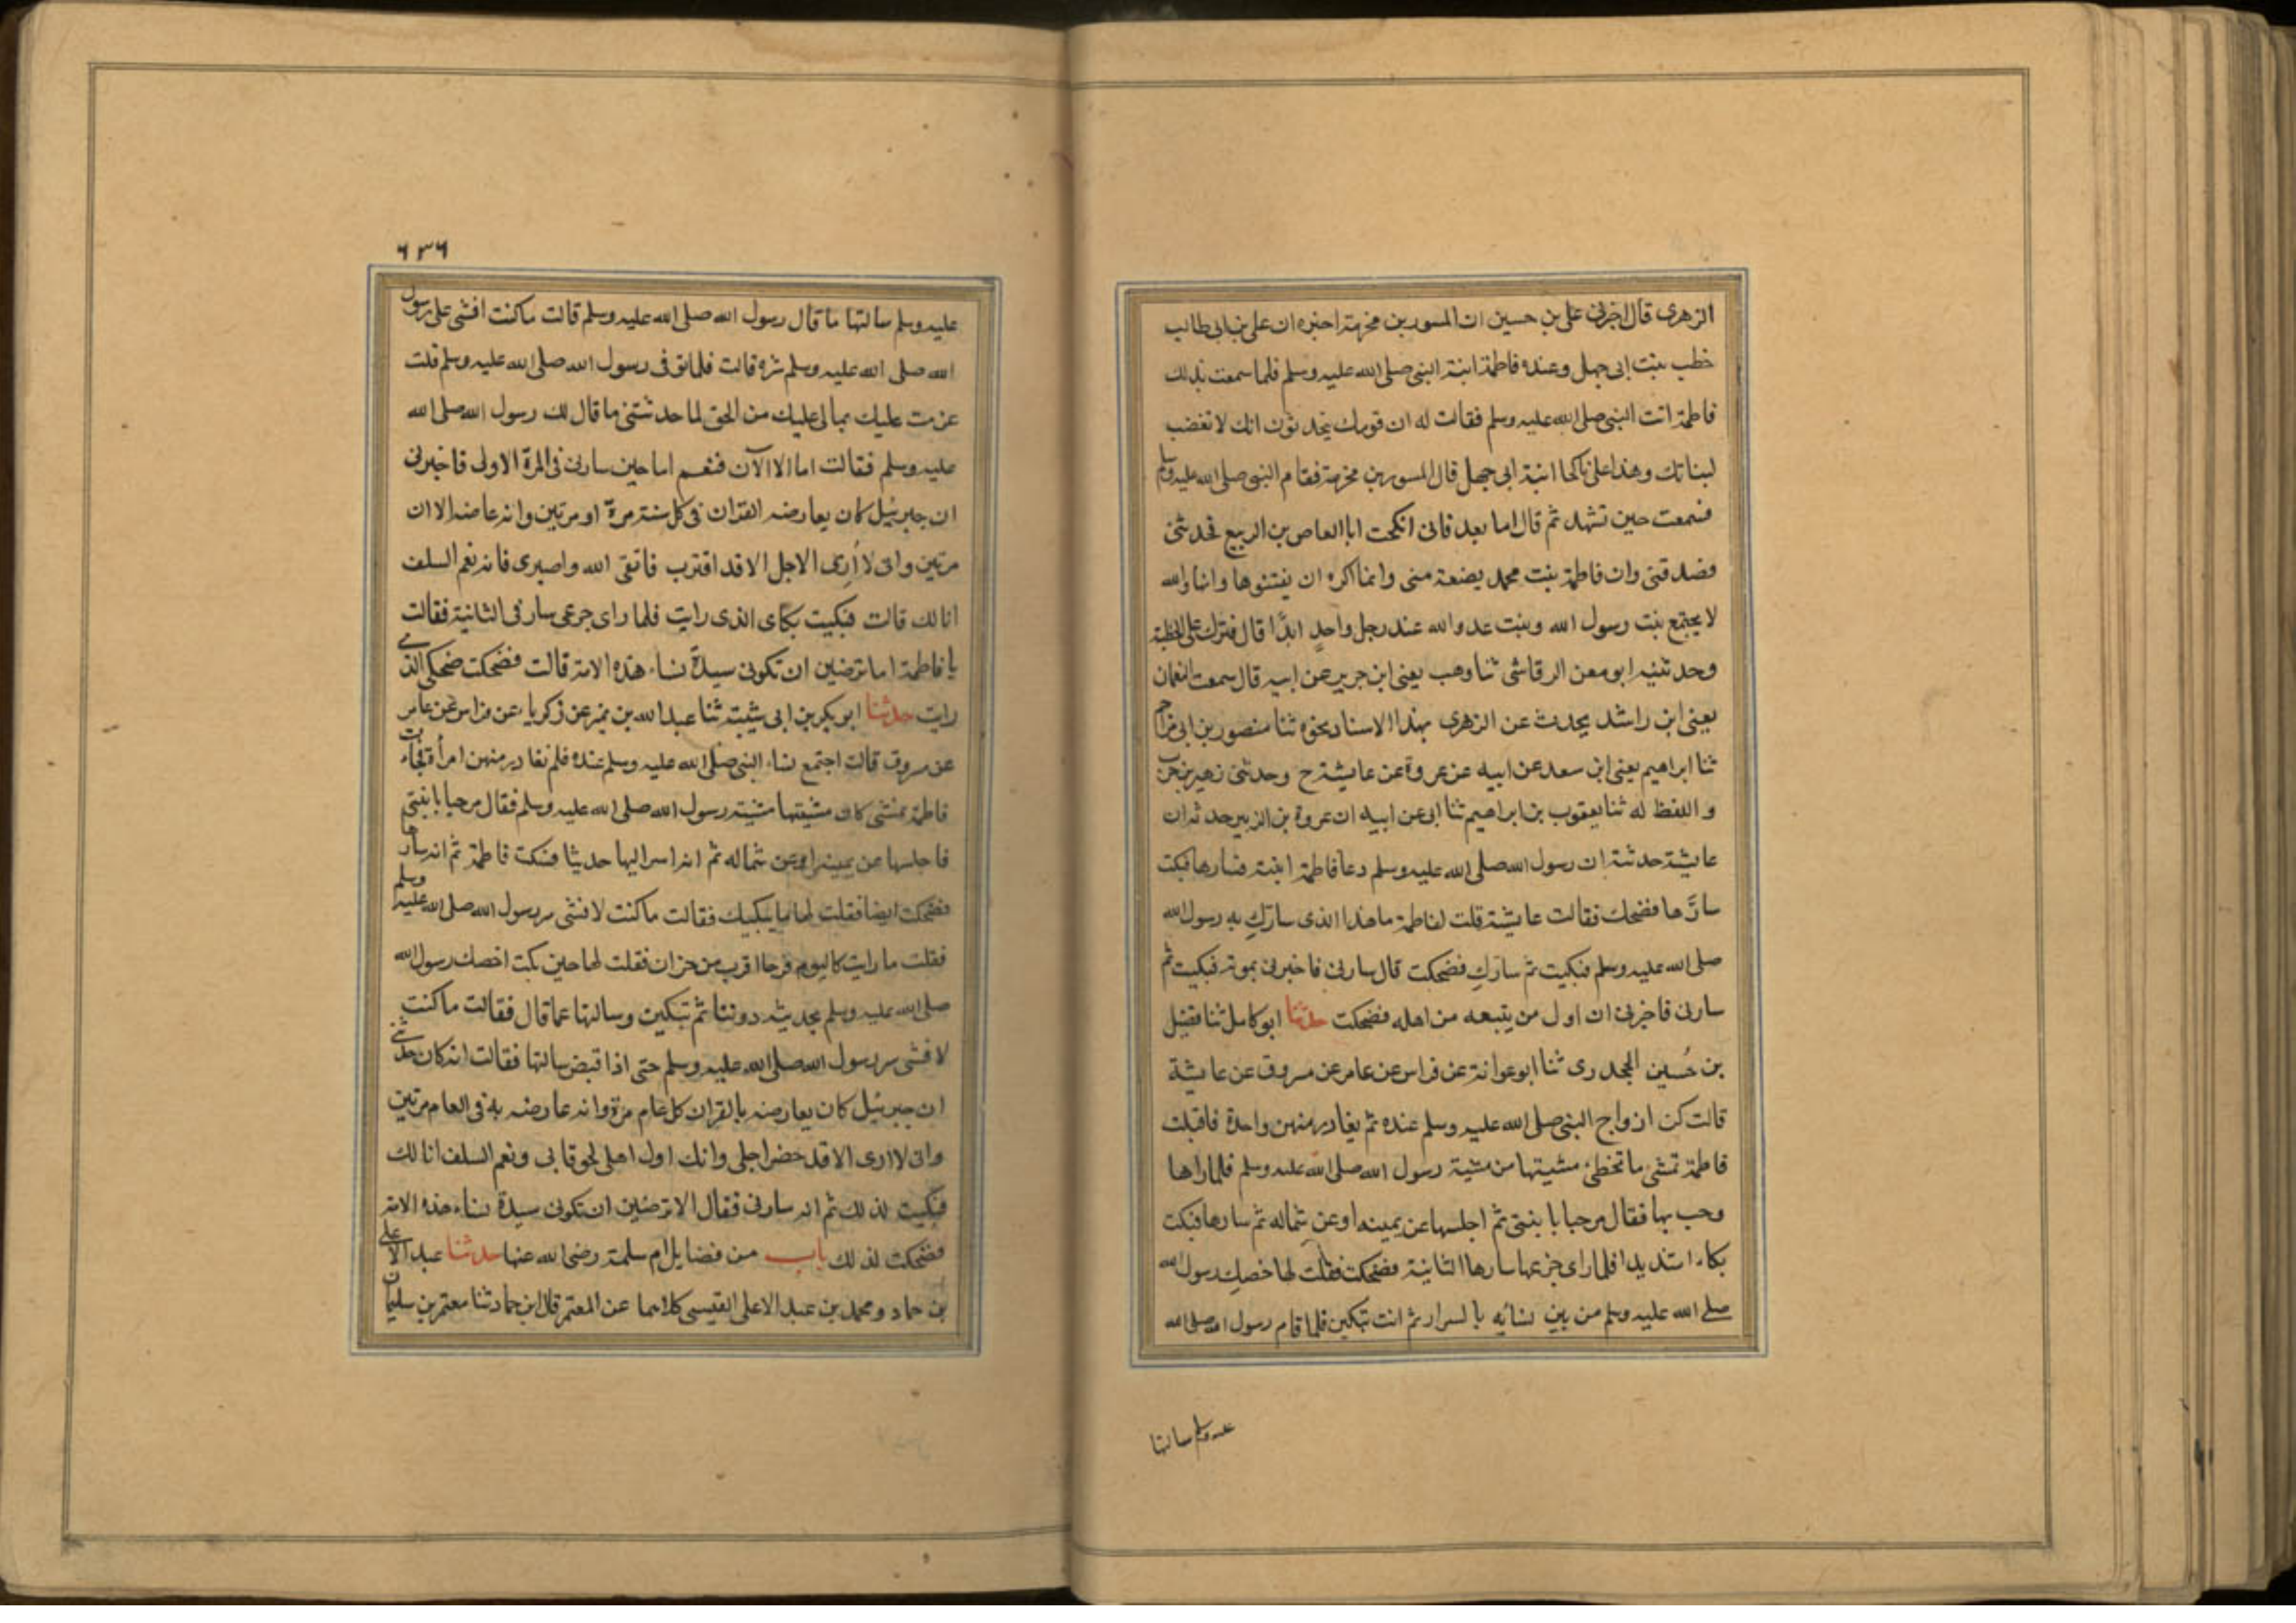 الزهرى قال اخبرنى على بن حسين ان المسور بن مخرمة اخبره ان على بن ابى طالب
خطب بنت ابى جهل وعنده فاطمة ابنة النبى صلى الله عليه وسلم فلما سمعت بذلك
فاطمة اتت النبى صلى الله عليه وسلم فقالت له ان قومك يتحدثون انك لا تغضب
لبناتك وهذا على ناكحا ابنة ابى جهل قال المسور بن مخرمة فقام النبى صلى الله عليه وسلم
فسمعت حين تشهد ثم قال اما بعد فانى انكحت ابا العاص بن الربيع فحدثنى
فصدقنى وان فاطمة بنت محمد بضعة منى وانما اكره ان يفتنوها وانها والله
لا يجتمع بنت رسول الله وبنت عدو الله عند رجل واحدٍ ابدًا قال فترك على الخطبة
وحدثنيه ابو معن الرقاشى ثنا وهب يعنى ابن جرير عن ابيه قال سمعت النعمان
يعنى ابن راشد يحدث عن الزهرى بهذا الاسناد نحوه ثنا منصور بن ابى مزاحم
ثنا ابراهيم يعنى ابن سعد عن ابيه عن عروة عن عايشة ح وحدثنى زهير بن حرب
واللفظ له ثنا يعقوب بن ابراهيم ثنا ابى عن ابيه ان عروة بن الزبير حدثه ان
عايشة حدثته ان رسول الله صلى الله عليه وسلم دعا فاطمة ابنته فسارها فبكت
سارَّها فضحك فقالت عايشة قلت لفاطمة ما هذا الذى سارّكِ به رسول الله
صلى الله عليه وسلم فبكيت ثم سارّكِ فضحكت قال سارنى فاخبرنى بموته فبكيت ثم
سارنى فاخبرنى ان اول من يتبعه من اهله فضحكت حدثنا ابو كامل ثنا فضيل
بن حُسين الجحدرى ثنا ابو عوانة عن فراس عن عامر عن مسروق عن عايشة
قالت كن ازواج النبى صلى الله عليه وسلم عنده ثم يغادر منهن واحدة فاقبلت
فاطمة تمشى ما تخطئ مشيتها من مشية رسول الله صلى الله عليه وسلم فلما راها
رحب بها فقال مرحبا با بنتى ثم اجلسها عن يمينه او عن شماله ثم سارها فبكت
بكاء شديدا فلما راى جزعها سارها الثانية فضحكت فقلت لها خصكِ رسول الله
صلى الله عليه وسلم من بين نسائه بالسرار ثم انت تبكين فلما قام رسول الله صلى الله
عليه وسلم سالتها
٦٣٦
عليه وسلم سالتها ما قال رسول الله صلى الله عليه وسلم قالت ما كنت افشى على رسول
الله صلى الله عليه وسلم سره قالت فلما توفى رسول الله صلى الله عليه وسلم قلت
عزمت عليك بمالى عليك من الحق لما حدثتنى ما قال لك رسول الله صلى الله
عليه وسلم فقالت اما الا الآن فنعم اما حين سارنى فى المرة الاولى فاخبرنى
ان جبرئيل كان يعارضه القران فى كل سنة مرة او مرتين وانه عاضه الا ان
مرتين وانى لا أرى الاجل الا قد اقترب فاتقى الله واصبرى فانه نعم السلف
انا لك قالت فبكيت بكاى الذى رايت فلما راى جزعى سارنى الثانية فقالت
يا فاطمة اما ترضين ان تكونى سيدة نساء هذه الامة قالت فضحكت ضحكى الذى
رايت حدثنا ابو بكر بن ابى شيبة ثنا عبد الله بن نمير عن زكرياء عن فراس عن عامر
عن مسروق قالت اجتمع نساء النبى صلى الله عليه وسلم عنده فلم نغادر منهن امرأة فجاءت
فاطمة تمشى كان مشيتها مشية رسول الله صلى الله عليه وسلم فقال مرحبا با بنتى
فاجلسها عن يمينه او عن شماله ثم انه اسر اليها حديثا فبكت فاطمة ثم انه سارها
فضحكت ايضا فقلت لها ما يبكيك فقالت ما كنت لافشى سر رسول الله صلى الله عليه وسلم
فقلت ما رايت كاليوم فرحا اقرب من حزان فقلت لها حين بكت اخصك رسول الله
صلى الله عليه وسلم بحديثه دوننا ثم تبكين وسالتها عما قال فقالت ما كنت
لافشى سر رسول الله صلى الله عليه وسلم حتى اذا قبض سالتها فقالت انه كان حدثنى
ان جبرئيل كان يعارضه بالقران كل عام مرة وانه عارضه به فى العام مرتين
وانى لا ارى الا قد حضر اجلى وانك اول اهلى لحوقا بى ونعم السلف انا لك
فبكيت لذلك ثم انه سارنى فقال الا ترضين ان تكونى سيدة نساء هذه الامة
فضحكت لذلك باب من فضايل ام سلمة رضى الله عنها حدثنا عبد الاعلى
بن حماد ومحمد بن عبد الاعلى القيسى كلاهما عن المعتمر قال ابن حماد ثنا معتمر بن سليمان